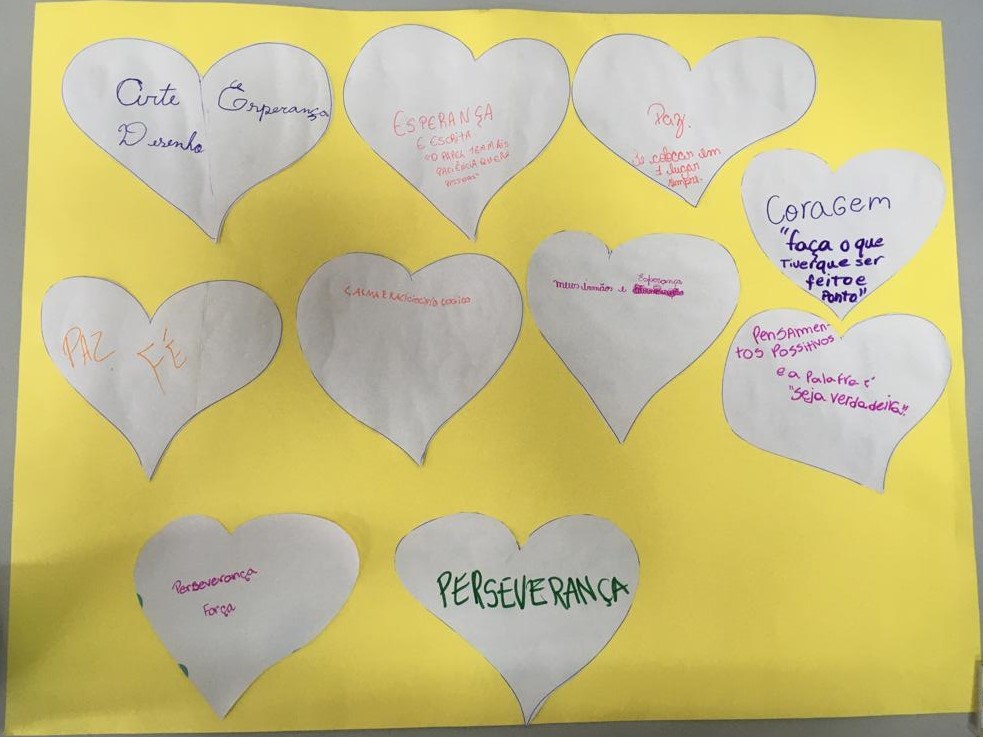 Arte
Desenho
e
Esperança
ESPERANÇA
E ESCRITA
"O PAPEL TEM MAIS
PACIÊNCIA QUE AS
PESSOAS"
Paz.
Se colocar em
1 lugar
sempre.
Coragem
"faça o que
Tiver que ser
feito e
Ponto"
PAZ FÉ
CALMA E RACiOCíNiO LOGiCO
Esperança
meus irmãos e
PensAmen-
tos Possitivos
e a Palafra é
"Seja verdadeira".
Perseverança
Força
PERSEVERANÇA